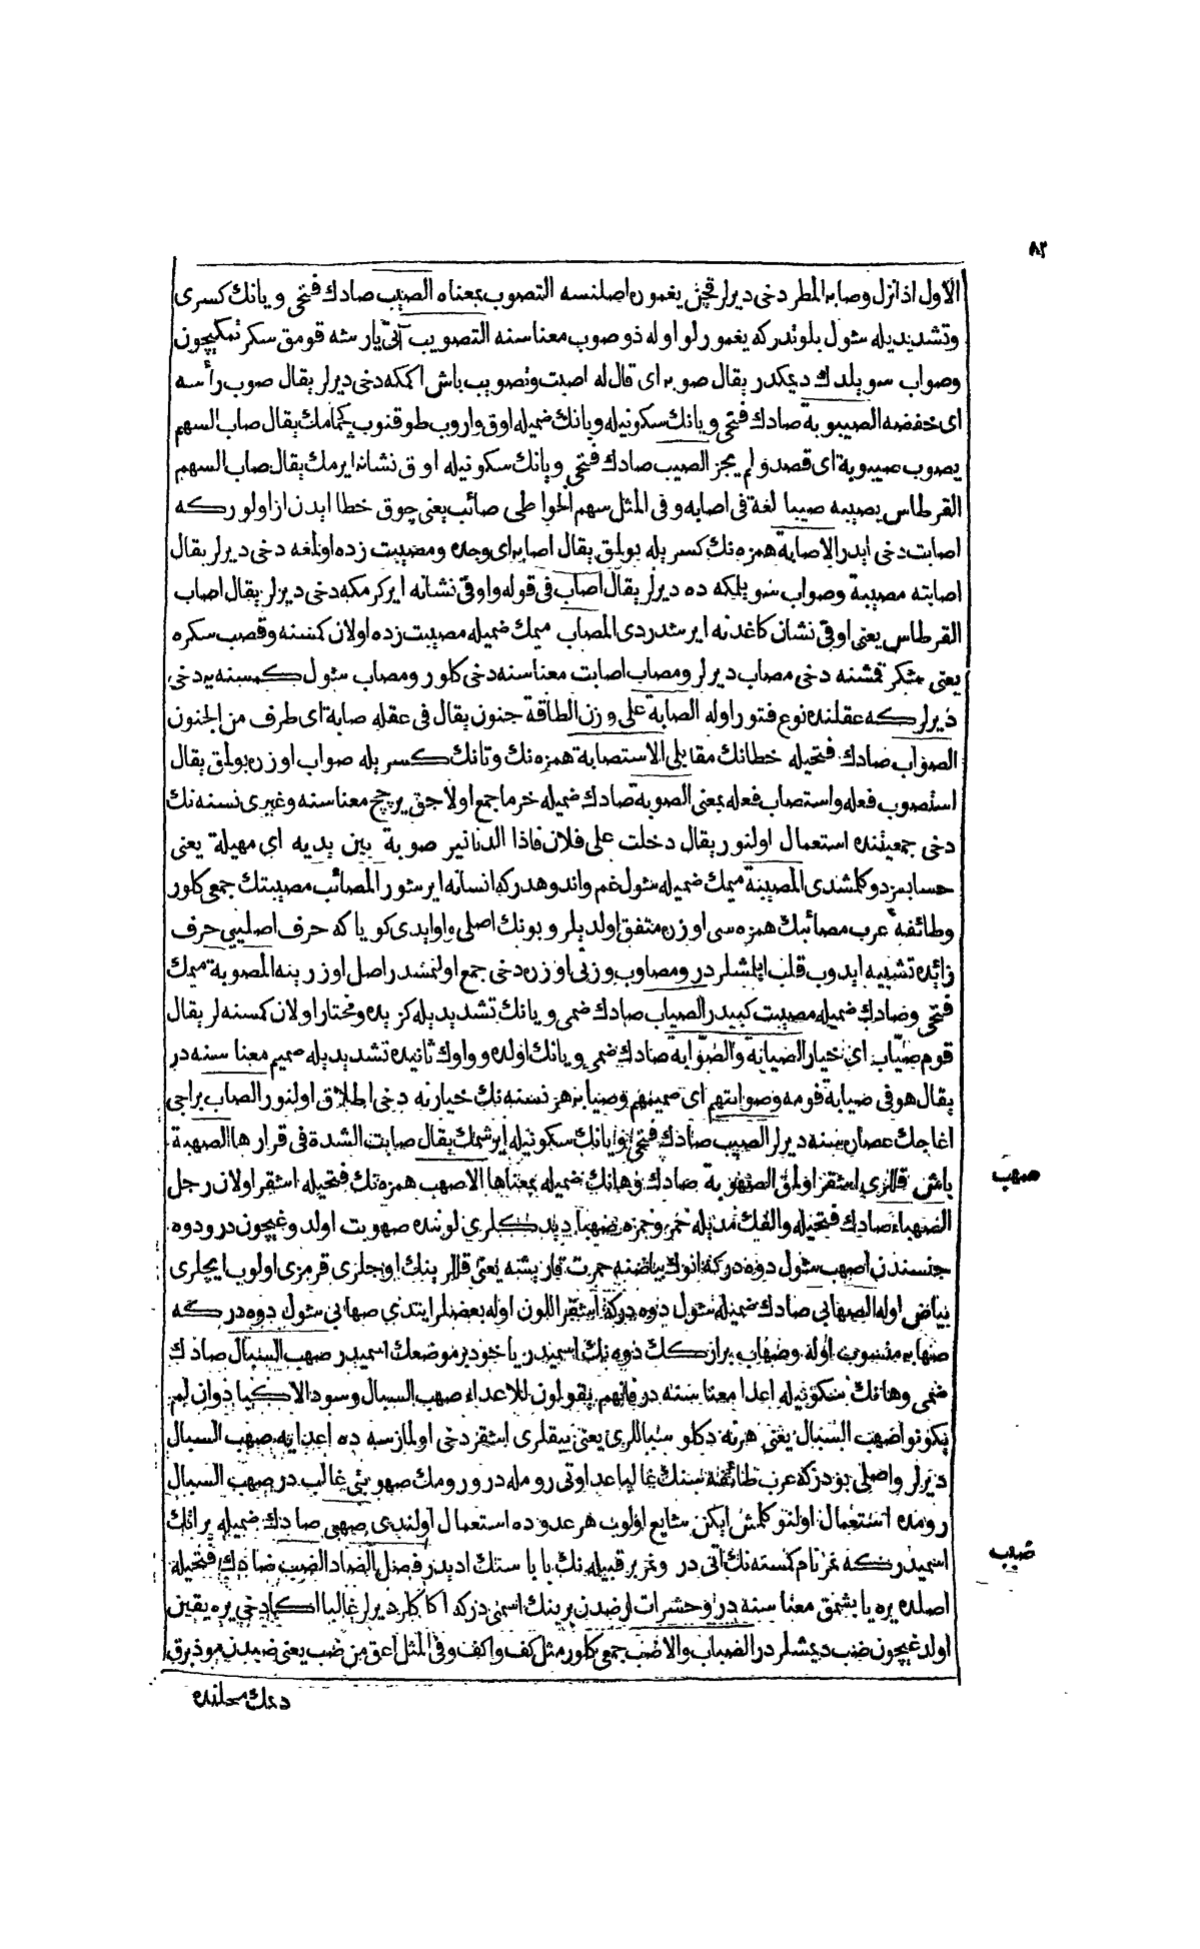 ٨٢
الاول اذا نزل وصابه المطر دخی دیرلر قچن یغمورە اصلنسه التصوب بمعناه الصیّب صادك فتحی و یانك کسری
وتشدیدیله شول بلوتدرکه یغمورلو اوله ذو صوب معناسنه التصویب آتی یارشه قومق سکر تمکیچون
وصواب سویلدك دیمکدر یقال صوبه ای قال له اصبت وتصویب باش اکمکه دخی دیرلر یقال صوب رأسه
ای خفضه الصیبوبة صادك فتحی و یانك سکونیله و یانك ضمیله اوق واروب طوقنوب کچمامك یقال صاب السهم
یصوب صیبوبة ای قصد ولم یجز الصیب صادك فتحی و یانك سکونیله اوق نشانه ایرمك یقال صاب السهم
القرطاس یصیبه صیبا لغة فی اصابه و فی المثل سهم الخواطی صائب یعنی چوق خطا ایدن از اولورکه
اصابت دخی ایدر الاصابة همزەنك کسریله بولمق یقال اصابه ای وجده ومصیبت زده اولمغه دخی دیرلر یقال
اصابته مصیبة وصواب سویلمکه ده دیرلر یقال اصاب فی قوله واوقی نشانه ایرکرمکه دخی دیرلر یقال اصاب
القرطاس یعنی اوقی نشان کاغدنه ایرشدردی المصاب میمك ضمیله مصیبت زده اولان کمسنه وقصب سکره
یعنی شکر قمشنه دخی مصاب دیرلر ومصاب اصابت معناسنه دخی کلور ومصاب شول کمسنه یه دخی
دیرلرکه عقلنده نوع فتور اوله الصابة علی وزن الطاقة جنون یقال فی عقله صابة ای طرف من الجنون
الصواب صادك فتحیله خطانك مقابلی الاستصابة همزەنك وتانك کسریله صواب اوزره بولمق یقال
استصوب فعله واستصاب فعله بمعنی الصوبة صادك ضمیله خرما جمع اولاجق یر جچ معناسنه وغیری نسنەنك
دخی جمعیتنده استعمال اولنور یقال دخلت علی فلان فاذا الدنانیر صوبة بین یدیه ای مهیلة یعنی
حسابسز دوکلمشدی المصیبة میمك ضمیله شول غم واندوهدرکه انسانه ایرشور المصائب مصیبتك جمعی کلور
وطائفهٔ عرب مصائبك همزەسی اوزره متفق اولدیلر و بونك اصلی واو ایدی کویا که حرف اصلییی حرف
زائده تشبیه ایدوب قلب ایلمشلردر ومصاوب وزنی اوزره دخی جمع اولنمشدر اصل اوزرینه المصوبة میمك
فتحی وصادك ضمیله مصیبت کبیدر الصیاب صادك ضمی و یانك تشدیدیله کزیده ومختار اولان کمسنەلر یقال
قوم صیّاب ای خیار الصیابة والصوّابة صادك ضمی و یانك اولده وواوك ثانیده تشدیدیله صمیم معناسنەدر
یقال هو فی صیابة قومه وصوابتهم ای صمیمهم وصیابه هر نسنەنك خیارنه دخی اطلاق اولنور الصاب بر اجی
اغاجك عصارەسنه دیرلر الصیب صادك فتحی و یانك سکونیله ایرشمك یقال صابت الشدة فی قرارها الصهبة
صهب
باش قللری اشقر اولمق الصهوبة صادك وهانك ضمیله بمعناها الاصهب همزەنك فتحیله اشقر اولان رجل
الصهباء صادك فتحیله والفك مدیله خمر وخمره صهبا دیدکلری لوننده صهوبت اولدوغیچوندر ودوه
جنسندن اصهب شول دوەدرکه انوك بیاضنه حمرت قارشمه یعنی قللرینك اوجلری قرمزی اولوب ایچلری
بیاض اوله الصهابی صادك ضمیله شول دوەدرکه اشقر اللون اوله بعضلر ایتدی صهابی شول دوەدرکه
صهابه منسوب اوله وصهاب بر ارکك دوەنك اسمیدر یاخود بر موضعك اسمیدر صهب السبال صادك
ضمی وهانك سکونیله اعدا معناسنەدر فانهم یقولون للاعداء صهب السبال وسود الاکباد وان لم
یکونوا صهب السبال یعنی هر نه دکلو سبالاری یعنی بیقلری اشقر دخی اولمازسه ده اعدایه صهب السبال
دیرلر واصلی بودرکه عرب طائفەسنك غالبا عداوتی روملەدر و رومك صهوبتی غالبدر صهب السبال
رومده استعمال اولنو کلمش ایکن شایع اولوب هر عدوده استعمال اولندی صهبی صادك ضمیله بر اتك
اسمیدرکه نمر نام کمسنەنك اتی در ونمر بر قبیلەنك باباسنك ادیدر فصل الضاد الضب ضادك فتحیله
ضبب
اصلده یره یاپشمق معناسنەدر وحشرات ارضدن برینك اسمی درکه اکا کلر دیرلر غالبا اکا دخی یره یقین
اولدغیچون ضب دیمشلردر الضباب والاضب جمعی کلور مثل کف واکف وفی المثل اعق من ضب یعنی ضبدن موذیرق
دخك محلنده